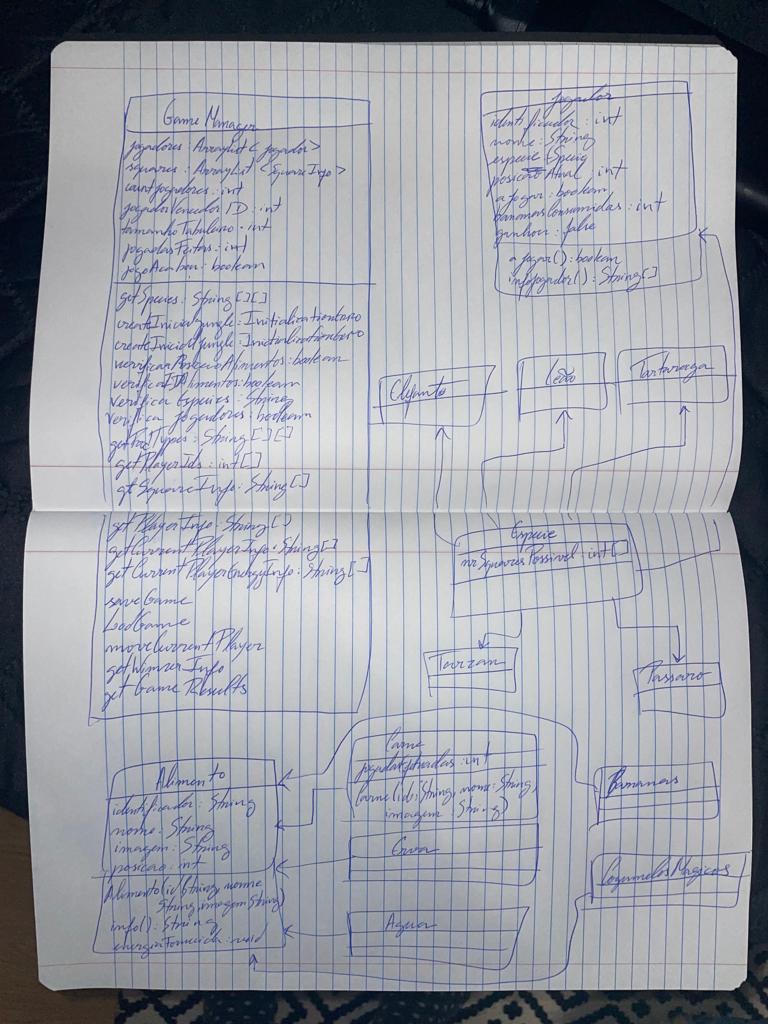 Game Manager
jogadores : ArrayList < jogador>
squares : ArrayList <SquareInfo>
countJogadores : int
jogadorVencedor ID : int
tamanhoTabuleiro : int
jogadasFeitas : int
jogoAcabou : boolean
getSpecies : String [][]
createInicialJungle : Initialization
createInicialJungle : Initialization
verificarPosicaoAlimentos : boolean
verificaIDAlimentos : boolean
Verifica Especies : String
Verifica jogadores : boolean
getFoodTypes : String [][]
getPlayerIds : int []
getSquareInfo : String []
getPlayerInfo : String []
getCurrent PlayerInfo : String []
getCurrent PlayerEnergyInfo : String []
saveGame
LoadGame
moveCurrent Player
getWinner Info
get Game Results
jogador
identificador : int
nome : String
especie : Especie
posicaoAtual : int
a jogar : boolean
bananasConsumidas : int
ganhou : false
a jogar () : boolean
infoJogador () : String []
Elefante
Leão
Tartaruga
Especie
nrSquaresPossivel : int []
Tarzan
Passaro
Alimento
identificador : String
nome : String
imagem : String
posicao : int
Alimento (id String, nome
String, imagem String)
info() : String
energiaFornecida : void
Carne
jogadasEfetuadas : int
Carne (id : String, nome : String,
imagem : String)
Erva
Agua
Bananas
CogumelosMagicos